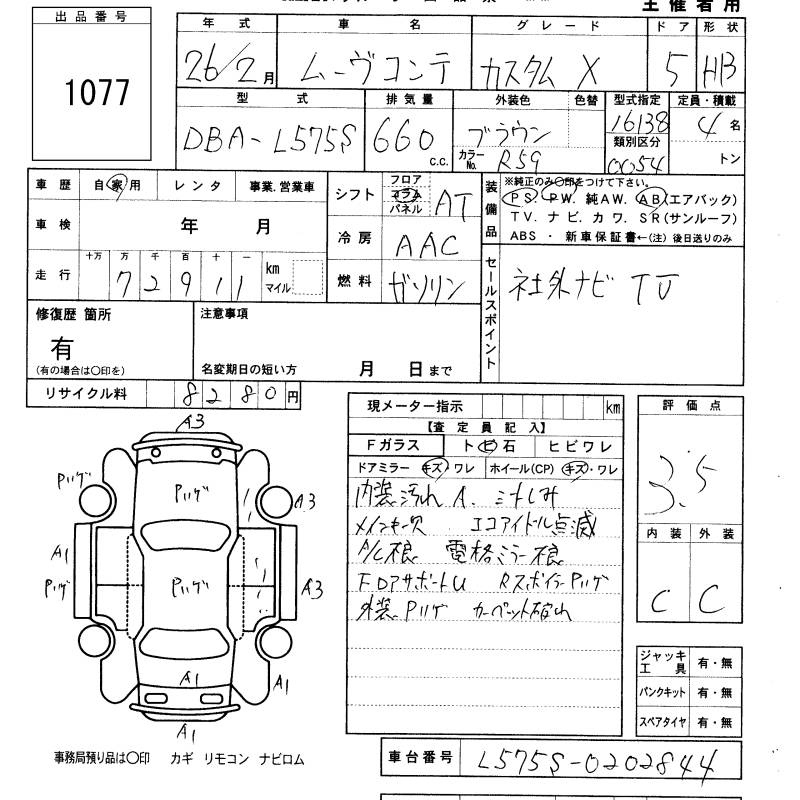 主催者用
出品番号
1077
年式 車名 グレード ドア 形状
26/2月 ムーヴコンテ カスタム X 5 HB
型式 排気量 外装色 色替 型式指定 定員・積載
DBA-L575S 660 c.c. ブラウン 16138 4名
カラーNo. R59 類別区分 0054 トン
車歴 自家用 レンタ 事業.営業車
車検 年 月
走行 十万 万 千 百 十 一 km マイル
7 2 9 1 1
シフト フロア コラム パネル AT
冷房 AAC
燃料 ガソリン
装備品 ※純正のみ〇印をつけて下さい。
PS. PW. 純AW. AB(エアバック)
TV. ナビ. カワ. SR(サンルーフ)
ABS ・ 新車保証書←(注) 後日送りのみ
セールスポイント 社外ナビ TV
修復歴 箇所
有
(有の場合は〇印を)
注意事項
名変期日の短い方 月 日まで
リサイクル料 8280円
現メーター指示 km
【査定員記入】
Fガラス トビ石 ヒビワレ
ドアミラー キズ・ワレ ホイール(CP) キズ・ワレ
内装汚れ A. シートしみ
メインキー欠 エコアイドル点滅
A/C良 電格ミラー良
F DアサポートU RスポイラーPハゲ
外装Pハゲ カーペット破れ
評価点
3.5
内装 外装
C C
ジャッキ工具 有・無
パンクキット 有・無
スペアタイヤ 有・無
A3
Pハゲ
Pハゲ
A3
A1
Pハゲ
Pハゲ
A3
A1
A1
A1
事務局預り品は〇印 カギ リモコン ナビロム
車台番号 L575S-0202844